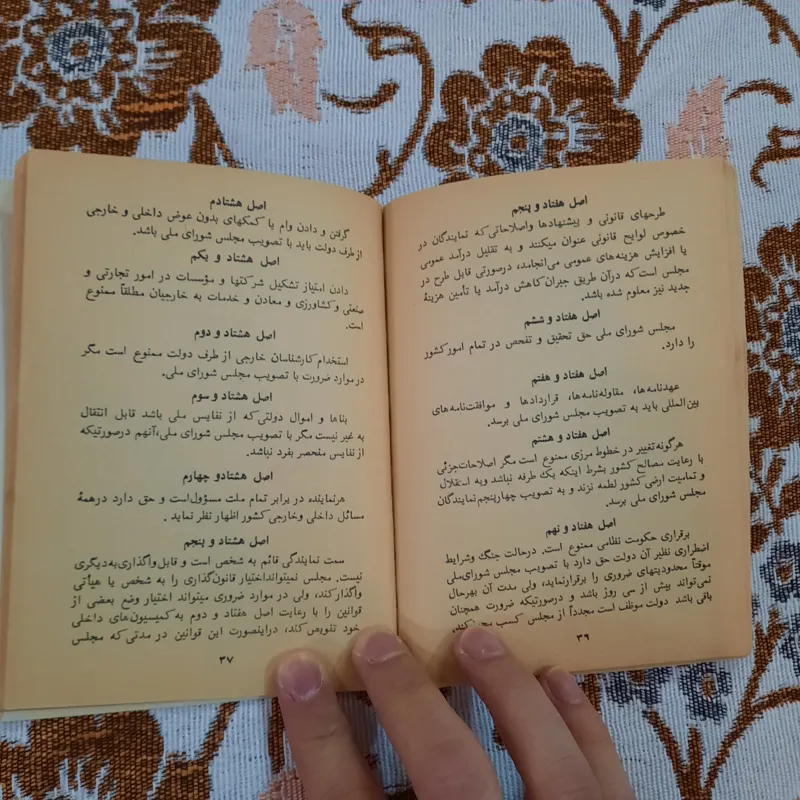 اصل هفتاد و پنجم
طرحهای قانونی و پیشنهادها واصلاحاتی که نمایندگان در
خصوص لوایح قانونی عنوان میکنند و به تقلیل درآمد عمومی
یا افزایش هزینه‌های عمومی می‌انجامد، درصورتی قابل طرح در
مجلس است که درآن طریق جبران کاهش درآمد یا تأمین هزینهٔ
جدید نیز معلوم شده باشد.
اصل هفتاد و ششم
مجلس شورای ملی حق تحقیق و تفحص در تمام امور کشور
را دارد.
اصل هفتاد و هفتم
عهدنامه‌ها، مقاوله‌نامه‌ها، قراردادها و موافقت‌نامه‌های
بین‌المللی باید به تصویب مجلس شورای ملی برسد.
اصل هفتاد و هشتم
هرگونه تغییر در خطوط مرزی ممنوع است مگر اصلاحات جزئی
با رعایت مصالح کشور بشرط اینکه یک طرفه نباشد وبه استقلال
و تمامیت ارضی کشور لطمه نزند و به تصویب چهارپنجم نمایندگان
مجلس شورای ملی برسد.
اصل هفتاد و نهم
برقراری حکومت نظامی ممنوع است. درحالت جنگ وشرایط
اضطراری نظیر آن دولت حق دارد با تصویب مجلس شورای‌ملی
موقتاً محدودیتهای ضروری را برقرارنماید، ولی مدت آن بهرحال
نمی‌تواند بیش از سی روز باشد و درصورتیکه ضرورت همچنان
باقی باشد دولت موظف است مجدداً از مجلس کسب مجوز کند.
۳۶
اصل هشتادم
گرفتن و دادن وام یا کمکهای بدون عوض داخلی و خارجی
از طرف دولت باید با تصویب مجلس شورای ملی باشد.
اصل هشتاد و یکم
دادن امتیاز تشکیل شرکتها و مؤسسات در امور تجارتی و
صنعتی وکشاورزی و معادن و خدمات به خارجیان مطلقاً ممنوع
است.
اصل هشتاد و دوم
استخدام کارشناسان خارجی از طرف دولت ممنوع است مگر
در موارد ضرورت با تصویب مجلس شورای ملی.
اصل هشتاد و سوم
بناها و اموال دولتی که از نفایس ملی باشد قابل انتقال
به غیر نیست مگر با تصویب مجلس شورای ملی،آنهم درصورتیکه
از نفایس منحصر بفرد نباشد.
اصل هشتادو چهارم
هرنماینده در برابر تمام ملت مسؤول است و حق دارد درهمهٔ
مسائل داخلی وخارجی کشور اظهار نظر نماید .
اصل هشتاد و پنجم
سمت نمایندگی قائم به شخص است و قابل‌واگذاری‌به‌دیگری
نیست. مجلس نمیتوانداختیار قانون‌گذاری را به شخص یا هیأتی
واگذار کند، ولی در موارد ضروری میتواند اختیار وضع بعضی از
قوانین را با رعایت اصل هفتاد و دوم به کمیسیون‌های داخلی
خود تفویض کند، دراینصورت این قوانین در مدتی که مجلس
۳۷